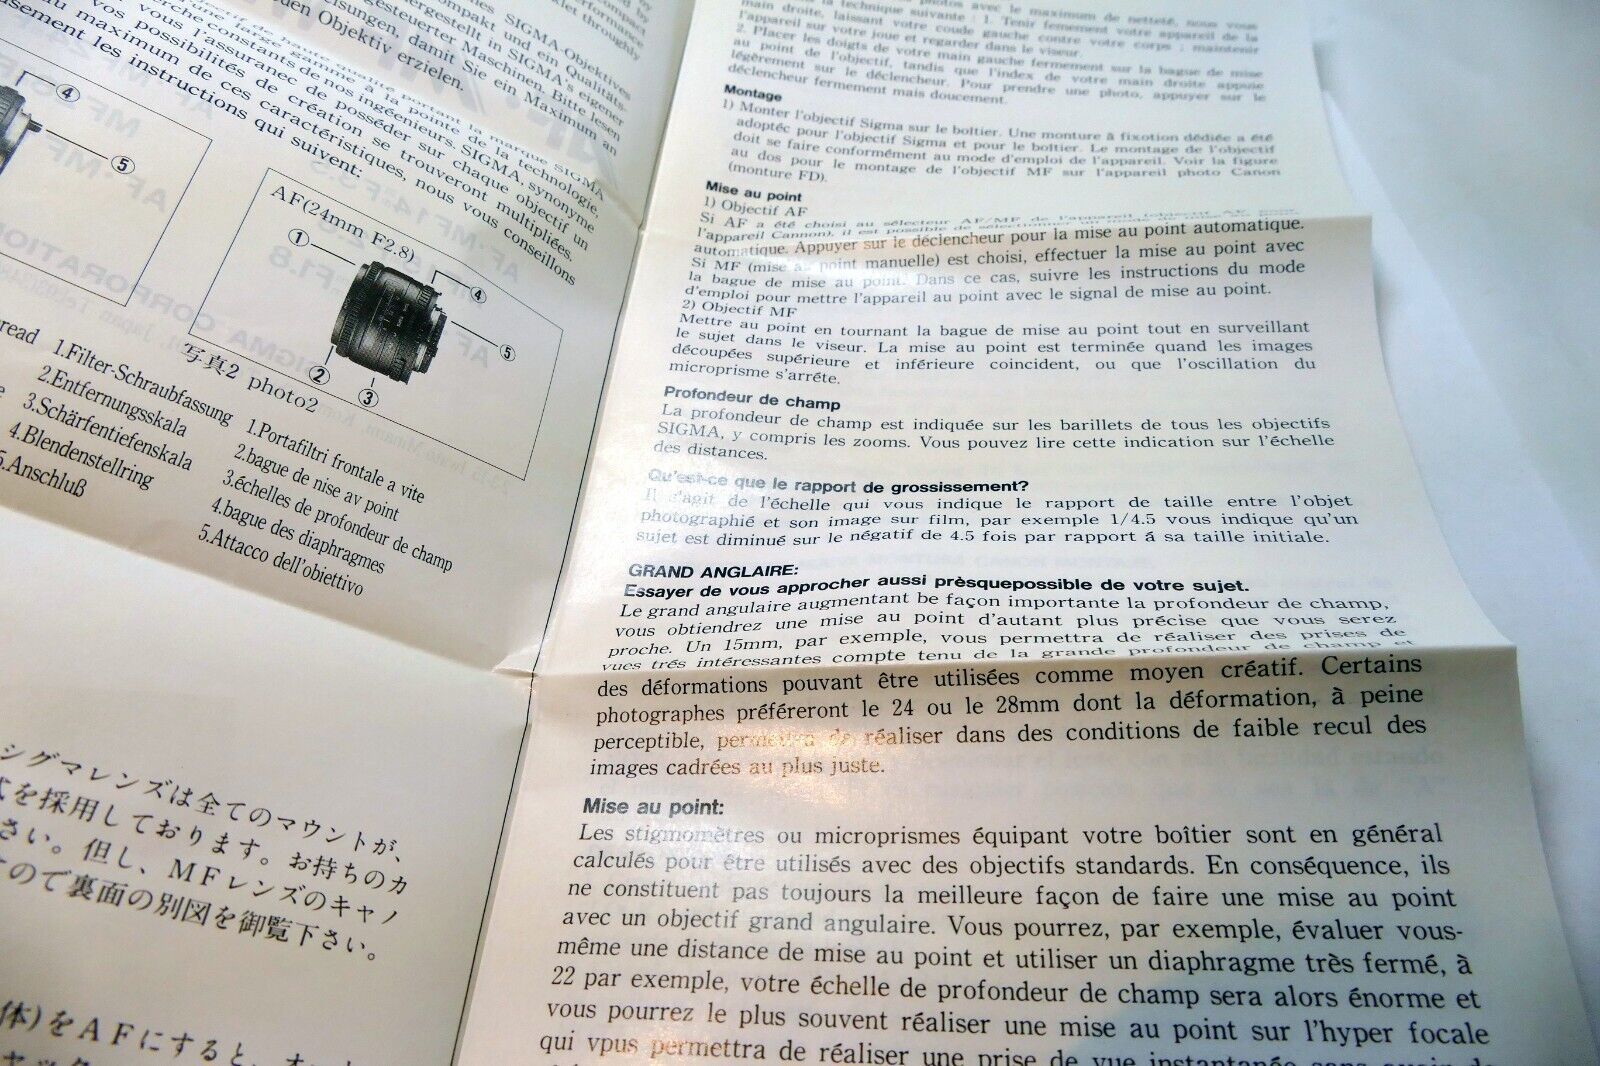 SIGMA-Objektives
kompakt und ein Qualitäts-
hergestellt in SIGMA's eigener
gesteuerter Maschinen. Bitte lesen
eisungen, damit Sie ein Maximum an
uen Objektiv erzielen.
haute qualité portant la marque SIGMA
à la pointe de la technologie,
constants de nos ingénieurs. SIGMA, synonyme
vous l'assurance de posséder sur chaque objectif un
vos possibilités de création se trouveront multipliées.
au maximum de ces caractéristiques, nous vous conseillons
usement les instructions qui suivent:
④
⑤
AF(24mm F2.8)
①
④
⑤
②
③
写真2 photo2
read
1.Filter-Schraubfassung
2.Entfernungsskala
3.Schärfentiefenskala
4.Blendenstellring
5.Anschluß
1.Portafiltri frontale a vite
2.bague de nise av point
3.échelles de profondeur de champ
4.bague des diaphragmes
5.Attacco dell'obiettivo
シグマレンズは全てのマウントが、
式を採用しております。お持ちのカ
さい。但し、MFレンズのキャノ
すので裏面の別図を御覧下さい。
体)をAFにすると、オ
photos avec le maximum de netteté, nous vous
la technique suivante : 1. Tenir fermement votre appareil de la
main droite, laissant votre coude gauche contre votre corps ; maintenir
l'appareil sur votre joue et regarder dans le viseur.
2. Placer les doigts de votre main gauche fermement sur la bague de mise
au point de l'objectif, tandis que l'index de votre main droite appuie
légèrement sur le déclencheur. Pour prendre une photo, appuyer sur le
déclencheur fermement mais doucement.
Montage
1) Monter l'objectif Sigma sur le boîtier. Une monture à fixotion dédiée a été
adoptée pour l'objectif Sigma et pour le boîtier. Le montage de l'objectif
doit se faire conformément au mode d'emploi de l'appareil. Voir la figure
au dos pour le montage de l'objectif MF sur l'appareil photo Canon
(monture FD).
Mise au point
1) Objectif AF
Si AF a été choisi au sélecteur AF/MF de l'appareil (objectif AF pour
l'appareil Cannon), il est possible de
automatique. Appuyer sur le déclencheur pour la mise au point automatique.
Si MF (mise au point manuelle) est choisi, effectuer la mise au point avec
la bague de mise au point. Dans ce cas, suivre les instructions du mode
d'emploi pour mettre l'appareil au point avec le signal de mise au point.
2) Objectif MF
Mettre au point en tournant la bague de mise au point tout en surveillant
le sujet dans le viseur. La mise au point est terminée quand les images
découpées supérieure et inférieure coincident, ou que l'oscillation du
microprisme s'arrête.
Profondeur de champ
La profondeur de champ est indiquée sur les barillets de tous les objectifs
SIGMA, y compris les zooms. Vous pouvez lire cette indication sur l'échelle
des distances.
Qu'est-ce que le rapport de grossissement?
Il s'agit de l'échelle qui vous indique le rapport de taille entre l'objet
photographié et son image sur film, par exemple 1/4.5 vous indique qu'un
sujet est diminué sur le négatif de 4.5 fois par rapport á sa taille initiale.
GRAND ANGLAIRE:
Essayer de vous approcher aussi prèsquepossible de votre sujet.
Le grand angulaire augmentant be façon importante la profondeur de champ,
vous obtiendrez une mise au point d'autant plus précise que vous serez
proche. Un 15mm, par exemple, vous permettra de réaliser des prises de
vues trés intéressantes compte tenu de la grande profondeur de champ et
des déformations pouvant être utilisées comme moyen créatif. Certains
photographes préféreront le 24 ou le 28mm dont la déformation, à peine
perceptible, permettra de réaliser dans des conditions de faible recul des
images cadrées au plus juste.
Mise au point:
Les stigmomètres ou microprismes équipant votre boîtier sont en général
calculés pour être utilisés avec des objectifs standards. En conséquence, ils
ne constituent pas toujours la meilleure façon de faire une mise au point
avec un objectif grand angulaire. Vous pourrez, par exemple, évaluer vous-
même une distance de mise au point et utiliser un diaphragme très fermé, à
22 par exemple, votre échelle de profondeur de champ sera alors énorme et
vous pourrez le plus souvent réaliser une mise au point sur l'hyper focale
qui vpus permettra de réaliser une prise de vue instantanée sans